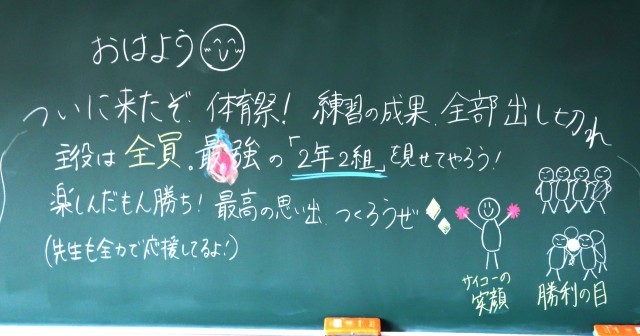 おはよう
ついに来たぞ、体育祭! 練習の成果、全部出し切れ
主役は全員。最強の「2年2組」を見せてやろう!
楽しんだもん勝ち! 最高の思い出、つくろうぜ
(先生も全力で応援してるよ!)
サイコーの
笑顔
勝利の目